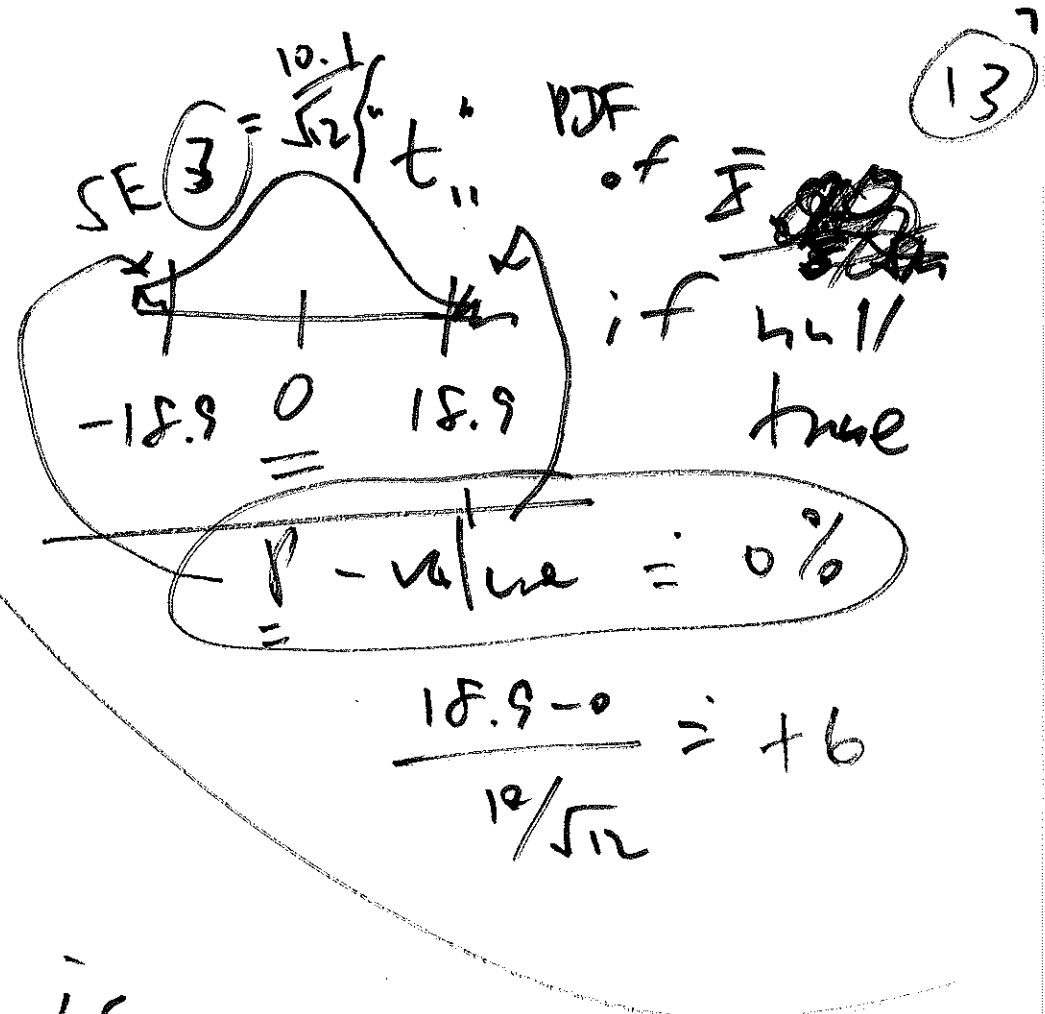 13
SE 3 = 10.1/√12 "t" PDF
of z̄
if null
true
-18.9 0 18.9
P-value ≐ 0%
18.9-0
10/√12 ≐ +6